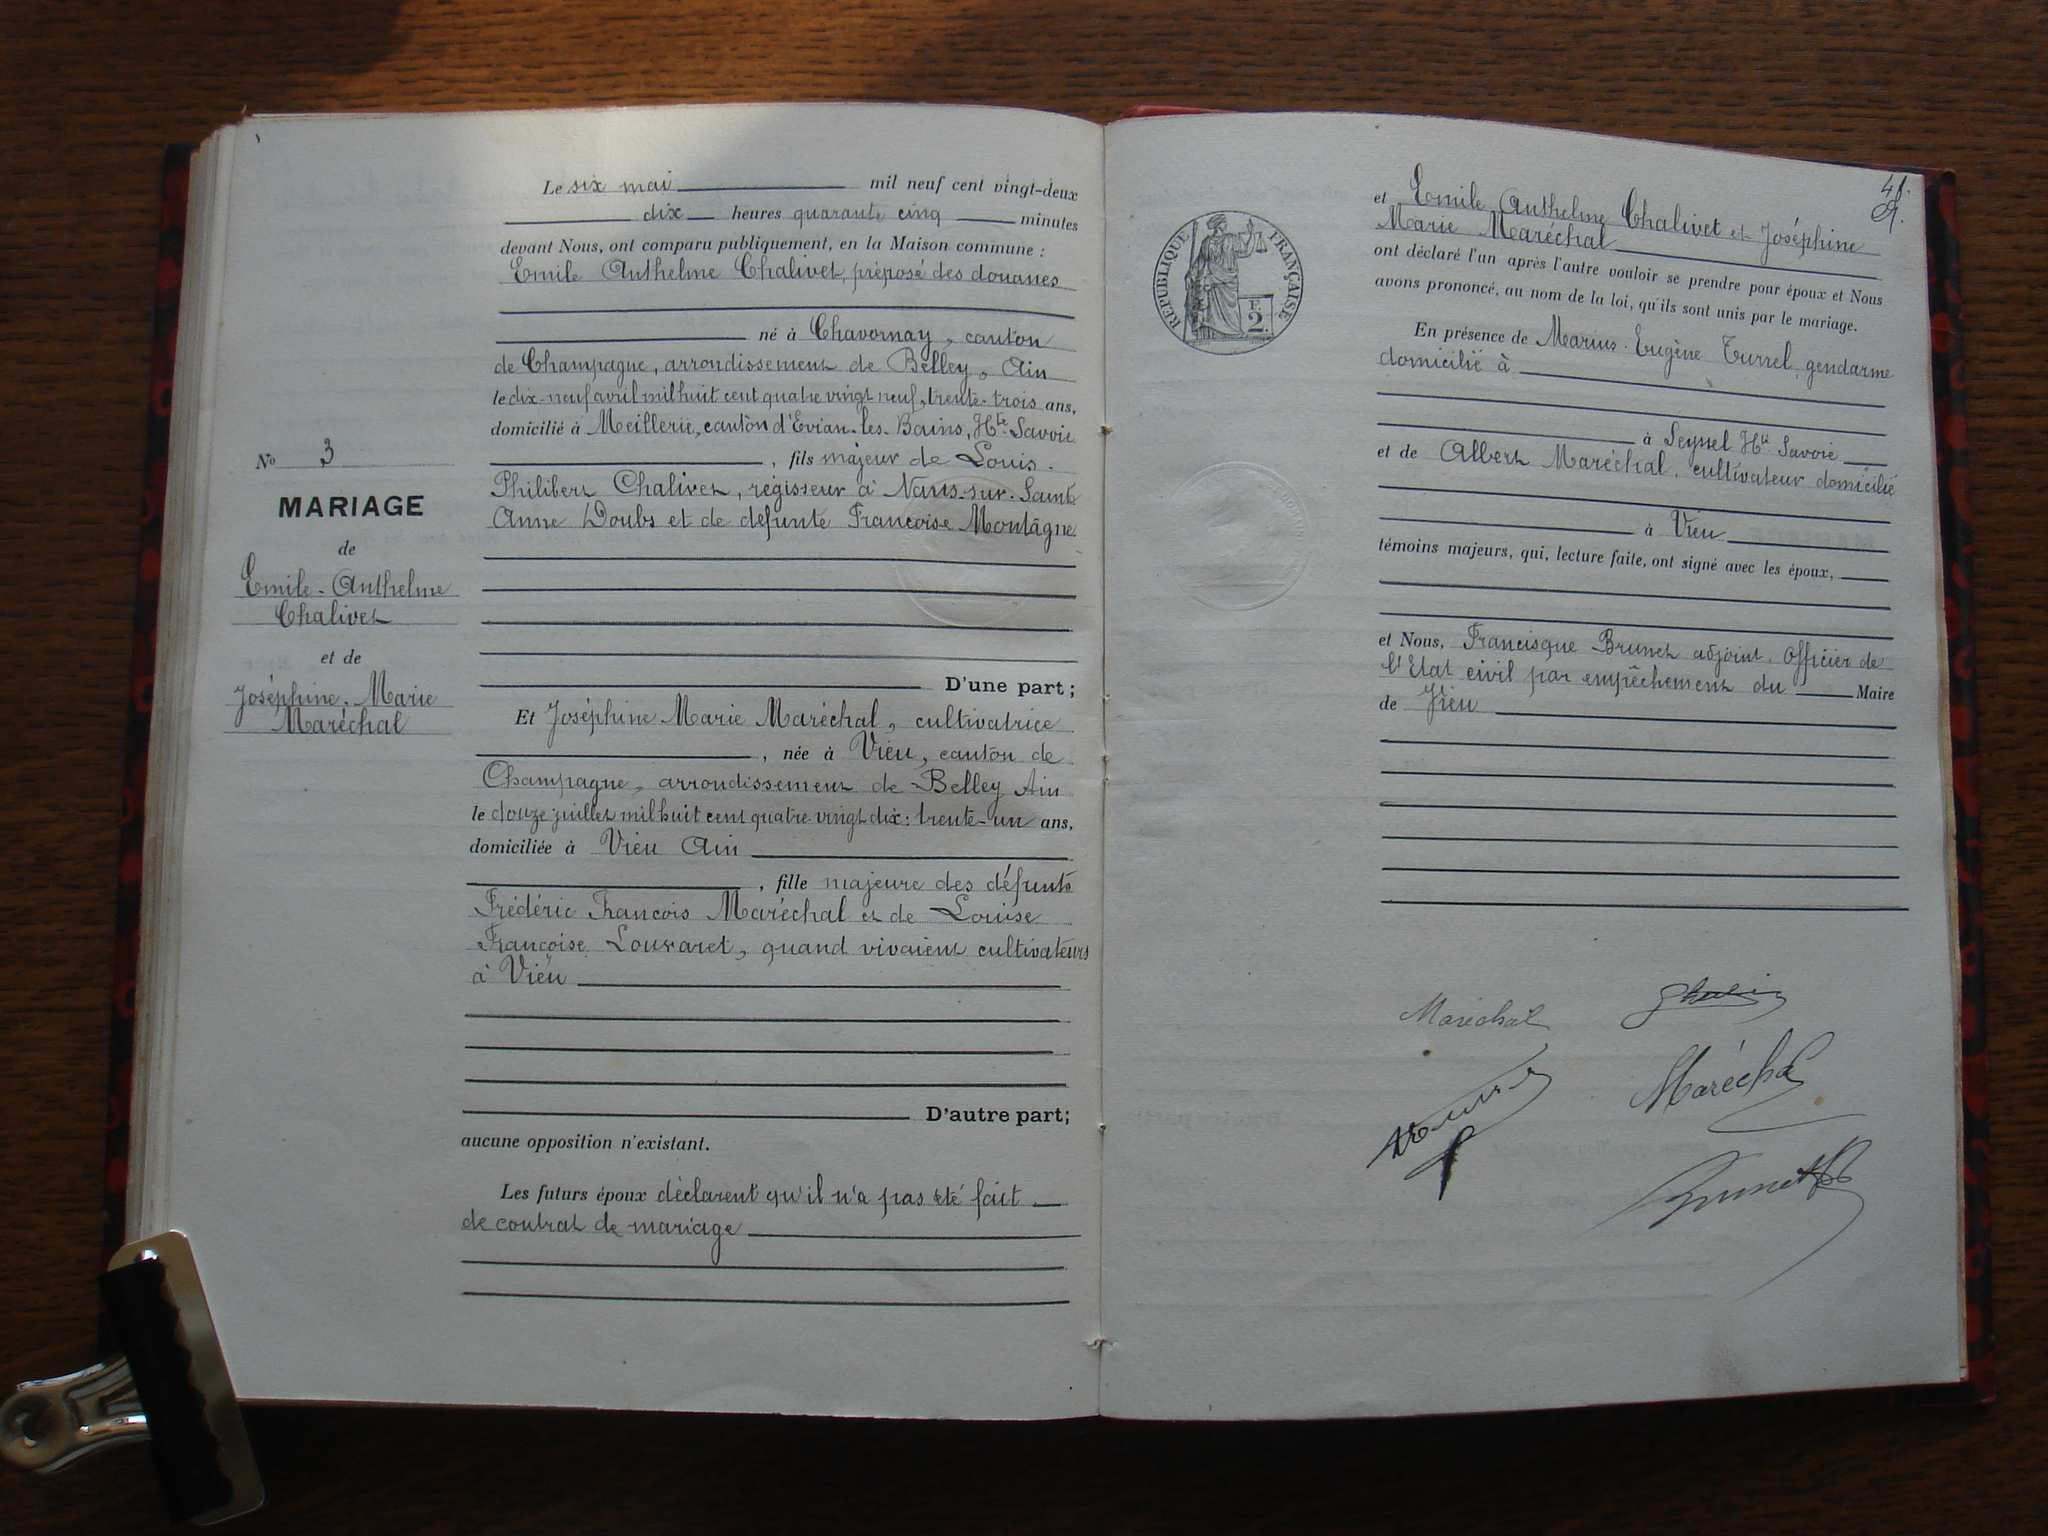 Le six mai mil neuf cent vingt-deux
dix heures quarante cinq minutes
devant Nous, ont comparu publiquement, en la Maison commune :
Emile Anthelme Chalivet, préposé des douanes
né à Chavornay, canton
de Champagne, arrondissement de Belley, Ain
le dix-neuf avril mil huit cent quatre vingt neuf, trente-trois ans,
domicilié à Meillerie, canton d'Evian-les-Bains, Hte Savoie
, fils majeur de Louis-
Philibert Chalivet, régisseur à Nans-sur-Sainte
Anne Doubs et de défunte Françoise Montagne
D'une part ;
Et Joséphine Marie Maréchal, cultivatrice
, née à Vieu, canton de
Champagne, arrondissement de Belley Ain
le douze juillet mil huit cent quatre vingt dix : trente-un ans,
domiciliée à Vieu Ain
, fille majeure des défunts
Frédéric François Maréchal et de Louise
Françoise Louvaret, quand vivaient cultivateurs
à Vieu
D'autre part ;
aucune opposition n'existant.
Les futurs époux déclarent qu'il n'a pas été fait
de contrat de mariage
No 3
MARIAGE
de
Emile-Anthelme
Chalivet
et de
Joséphine-Marie
Maréchal
RÉPUBLIQUE FRANÇAISE
2
et Emile Anthelme Chalivet et Joséphine
Marie Maréchal
ont déclaré l'un après l'autre vouloir se prendre pour époux et Nous
avons prononcé, au nom de la loi, qu'ils sont unis par le mariage.
En présence de Marius-Eugène Turrel, gendarme
domicilié à
à Seyssel Hte Savoie
et de Albert Maréchal, cultivateur domicilié
à Vieu
témoins majeurs, qui, lecture faite, ont signé avec les époux,
et Nous, Francisque Brunet adjoint, Officier de
l'Etat civil par empêchement du Maire
de Vieu
Maréchal
Maréchal
Brunet